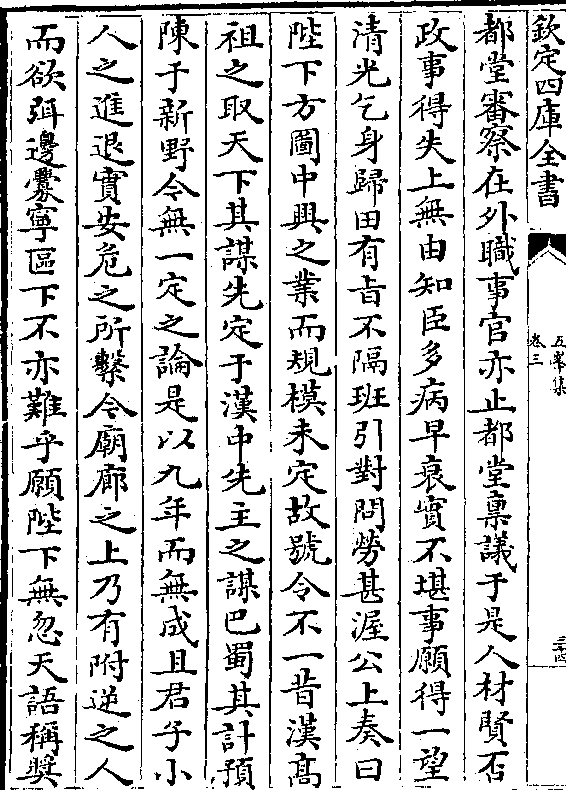 欽定四庫全書
五峯集
卷三
三十四
都堂審察在外職事官亦止都堂稟議于是人材賢否
政事得失上無由知臣多病早衰實不堪事願得一望
清光乞身歸田有旨不隔班引對問勞甚渥公上奏曰
陛下方圖中興之業而規模未定故號令不一昔漢髙
祖之取天下其謀先定于漢中先主之謀巴蜀其計預
陳于新野今無一定之論是以九年而無成且君子小
人之進退實安危之所繫今廟廊之上乃有附逆之人
而欲弭邊釁寧區下不亦難乎願陛下無忽天語稱奬